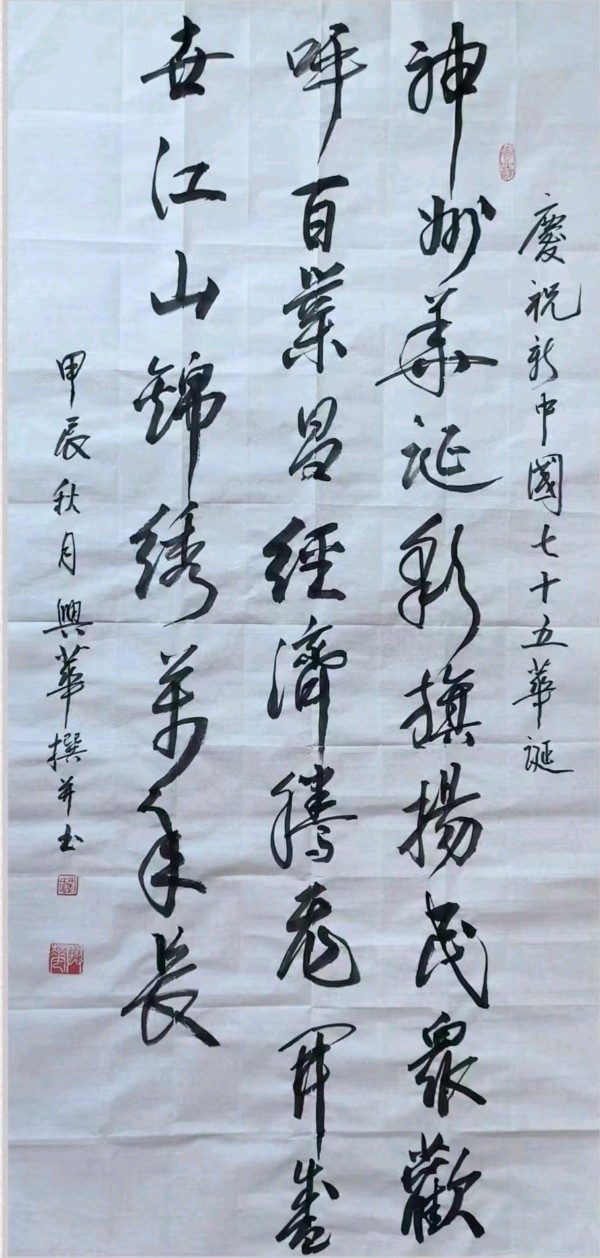 慶祝新中國七十五華誕
神州華誕彩旗揚民眾歡
呼百業昌經濟騰飛開盛
世江山錦綉萬年長
甲辰秋月興華撰并书